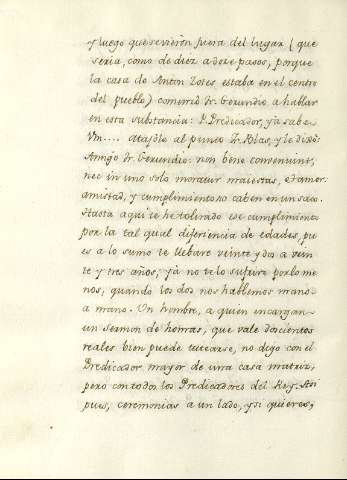 Y luego que se vieron fuera del lugar (que
seria, como de diez a doce pasos, porque
la casa de Anton Zotes estaba en el centro
del pueblo) comenzó Fr. Gerundio a hablar
en esta substancia: P. Predicador, ya sabe
Vm.... Atajóle al punto Fr. Blas, y le dixo:
Amigo Fr. Gerundio: non bene conveniunt,
nec in una sede morantur maiestas, et amor.
amistad, y cumplimiento no caben en un saco.
Hasta aqui te he tolerado ese cumplimiento
por la tal qual diferiencia de edades, pu
es a lo sumo te llebare veinte y dos a vein
te y tres años; ya no te lo sufrire por lo me
nos, quando los dos nos hablemos mano
a mano. Un hombre, a quien encargan
un Sermon de honras, que vale doscientos
reales bien puede tutearse, no digo con el
Predicador mayor de una casa matriz,
pero con todos los Predicadores del Rey. Asi
pues, ceremonias a un lado, y si quieres,